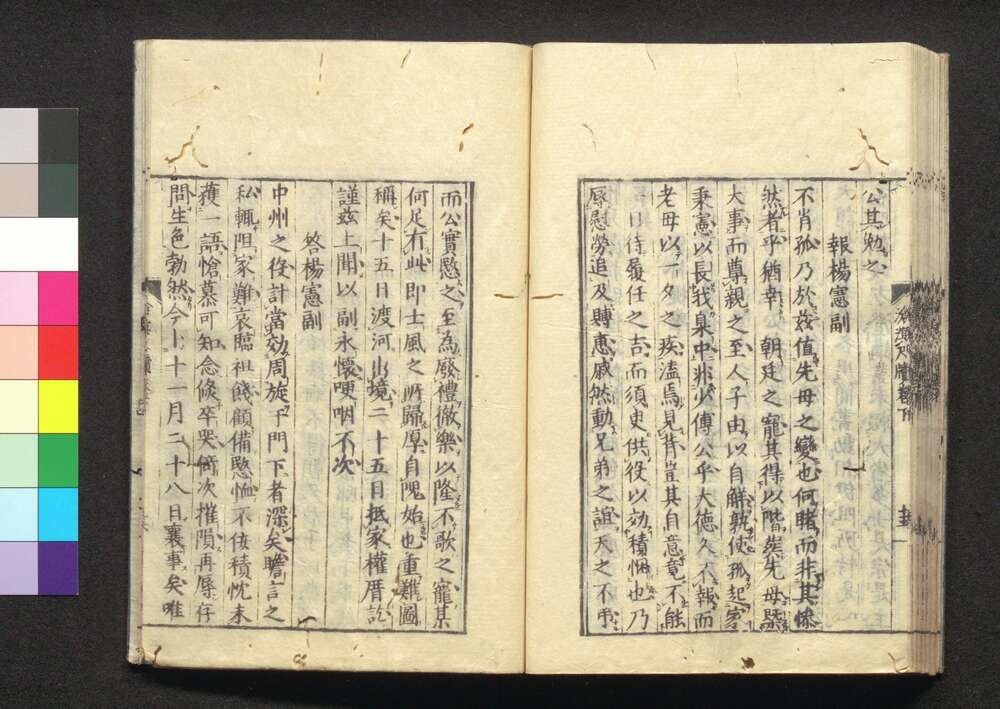 公其勉之
報楊憲副
不肖孤乃於茲值先母之變也何賭而非其慘
然者乎猶幸 朝廷之寵其得以階葬先母
大事而尊親之至人子由以自解孰使孤起家
秉憲以長我臬中非少傅公乎大德久不報而
老母以一夕之疾溘焉見背豈其自意竟不能
一日侍履任之吉而須臾供役以効積悃也乃
辱慰勞追及賻惠戚然動兄弟之誼天之不弔
而公實愍之至為廢禮徹樂以隆不歌之寵某
何足有此即士風之所歸厚自隗始也重難圖
稱矣十五日渡河出境二十五日抵家權厝訖
謹茲上聞以副永懷哽咽不次
答楊憲副
中州之役計當効周旋于門下者深矣瞻言之
私輒阻家難哀臨祖餞顧備愍恤不佞積忱未
獲一語愴慕可知念倏卒哭倚次摧隕再辱存
問生色勃然今卜十一月二十八日襄事矣唯